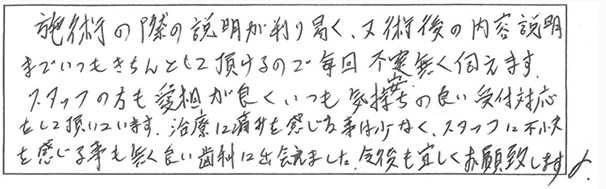 施術の際の説明が判り易く、又術後の内容説明
までいつもきちんとして頂けるので毎回不安無く伺えます。
スタッフの方も愛想が良くいつも気持ちの良い受付対応
をして頂いています。治療に痛みを感じる事は少なく、スタッフに不満
を感じる事も無く良い歯科に出会えました。今後も宜しくお願致します。